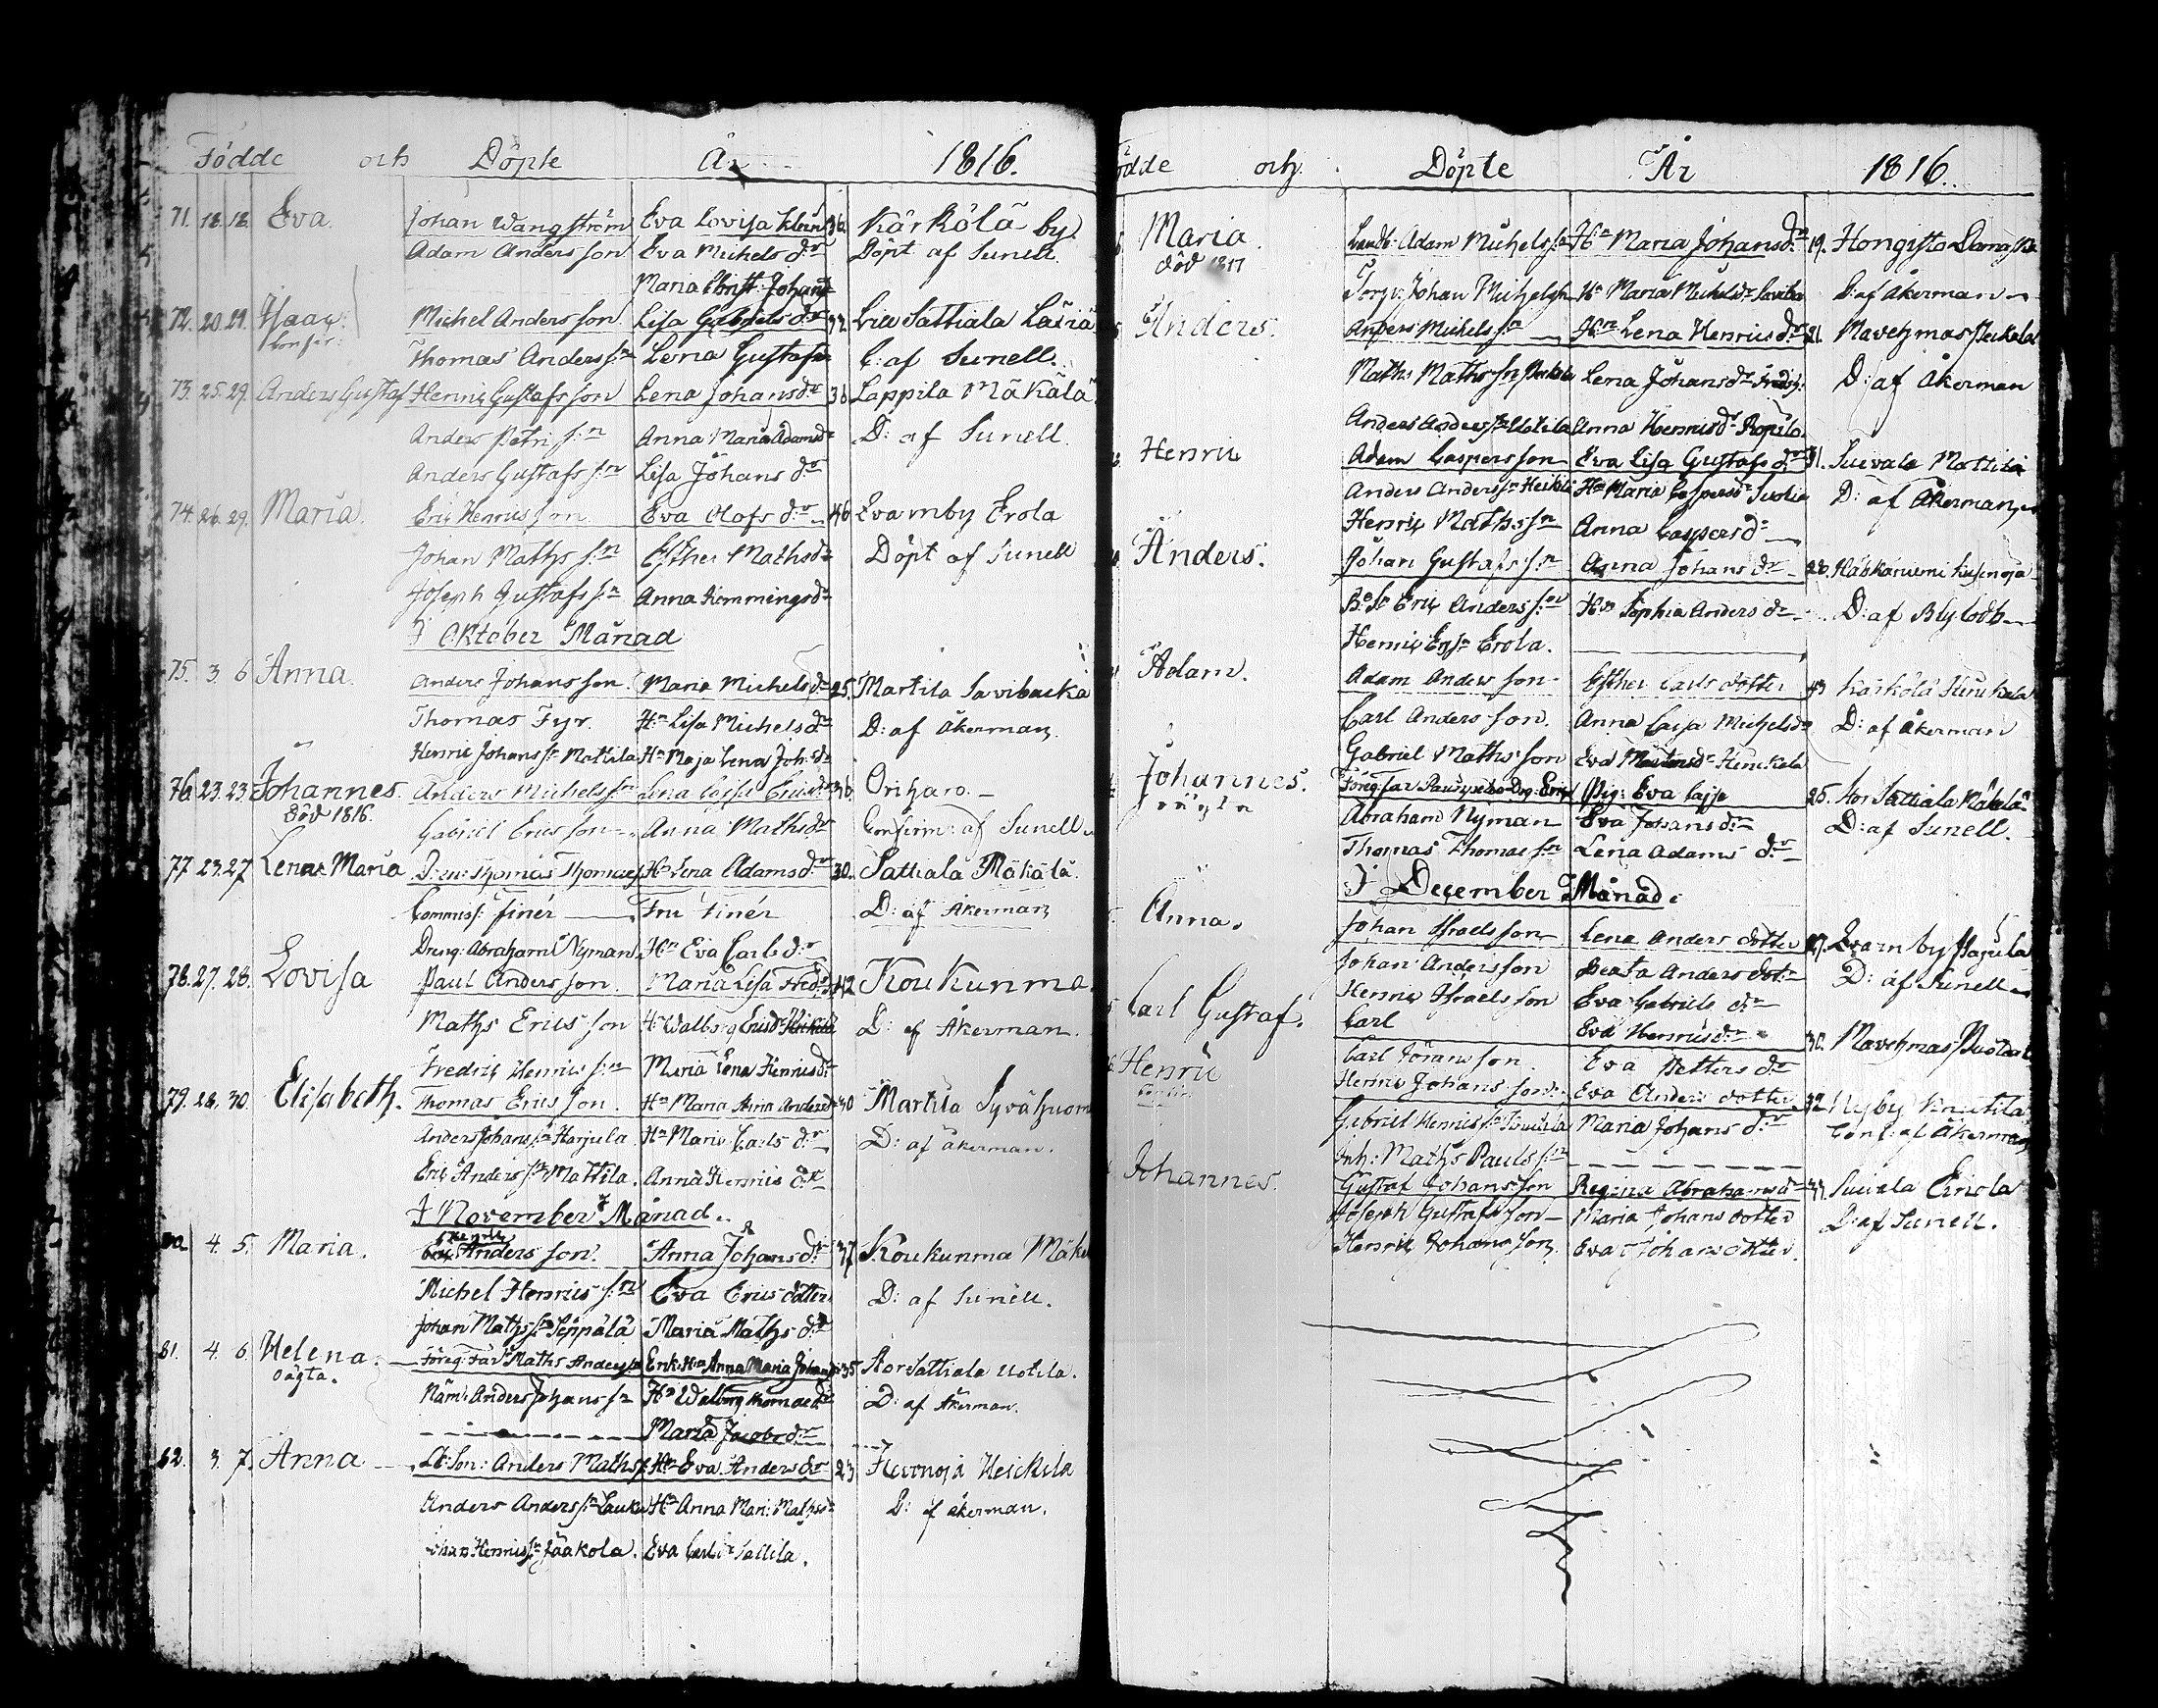 Födde och Döpte År 1816.
71. 18. 18. Eva. Johan Wangström Eva Lovisa 36. Kärkölä by.
Adam Andersson Eva Michels dr Döpt af Sunell.
Maria Christ: Johansd
72. 20. 21. Isaac. Michel Andersson Lisa Gabriels dr 32. Sattiala
Confir: Thomas Anders sn Lena Gustafs C: af Sunell.
73. 25. 29. Anders Gustaf Henric Gustafsson Lena Johans dr 36 Lappila Mäkälä.
Anders Petri sn Anna Maria Adamsdr D: af Sunell.
Anders Gustafs sn Lisa Johans dr
74. 26. 29. Maria. Eric Henricsson Eva Olofs dr 46 Evamby Erola
Johan Maths sn Esther Mathsdr Döpt af Sunell
Joseph Gustafs sn Anna Hemmingsdr
I Oktober Månad
75. 3. 6 Anna. Anders Johansson. Maria Michels dr 25. Martila Savibacka
Thomas Fyr. Hn Lisa Michels dr D: af Åkerman.
Henric Johans sn Mattila Hn Maja Lena Joh: dr
76. 23. 23 Johannes. Anders Michels sn Lena Cajsa Ericsdr 36. Oriharo.
död 1816. Gabriel Ericsson Anna Maths dr Confirm: af Sunell
77 23. 27 Lena Maria Thomas Thomaes Hn Lena Adams dr 30. Sattiala Mäkälä.
Commiss: Finér Fru Finér D: af Åkerman
Dreng: Abraham Nyman Hn Eva Carls dr
78. 27. 28. Lovisa Paul Andersson. Maria Lisa Fredr: 42 Koukunma.
Maths Ericsson Hn Walborg Ericsdr D: af Åkerman.
Fredric Henrics sn Maria Lena Henricsdr
79. 28. 30. Elisabeth. Thomas Ericsson. Hn Maria Stina Andersd 30 Martila Syväsuom
Anders Johans sn Harjula Hn Maria Carls dr D: af åkerman.
Eric Anders sn Mattila. Anna Henrics dr
I November Månad.
80. 4. 5. Maria. Henric Andersson. Anna Johans dr 37 Koukunma Mäke
Michel Henrics sn Eva Erics dotter D: af Sunell.
Johan Maths sn Seppälä Maria Maths dr
81. 4. 6. Helena. Föreg: Far Maths Anders sn Enk: Hn Anna Maria Johansd 35 Stor Sattiala Uotila.
oägta. Näm: Anders Johans sn Hn Walborg Thomae dr D: af Åkerman.
Maria Jacobs dr
82. 3. 7. Anna Anders Maths Hn Eva Anders dr 23 Hevonoja Heickilä
Anders Anders sn Hn Anna Mari: Mathsdr D: af åkerman.
Johan Henrics sn Jäakola. Eva Carls dr Sallila.
ödde och Döpte År 1816.
Maria. Landb: Adam Michels sn Hn Maria Johansdr 19. Hongisto
död 1817
Torp: Johan Michels sn Hn Maria Michelsdr D: af Åkerman
Anders. Anders Michels sn Hn Lena Henrics dr 21. Mavehmas
Maths Maths sn Lena Johansdr D: af Åkerman
Anders Anders sn Uotila Anna Henricsdr
Henric Adam Caspersson Eva Lisa Gustafs dr 31. Suevala Mattila
Anders Anders sn Heickilä Hn Maria Caspersdr D: af Åkerman
Henric Maths sn Anna Caspersdr
Anders. Johan Gustafs sn Anna Johans dr 28.
Eric Anders sn Hn Sophia Anders dr D: af Blyloth
Henric Erola.
Adam. Adam Andersson Esther Carls dotter 43 Kärkölä
Carl Andersson. Anna Caisa Michelsdr D: af Åkerman
Gabriel Mathsson Eva
Johannes. Pig: Eva Cajsa 25. Stor Sattiala Mäkälä
oägta Abraham Nyman Eva Johans dr D: af Sunell.
Thomas Thomae sn Lena Adams dr
I December Månad.
Anna. Johan Israelsson Lena Anders dotter 27. Evamby
Johan Andersson Beata Anders dotr D: af Sunell
Henric Israelsson Eva Gabriels dr
Carl Gustaf. Carl Eva Henrics dr 30. Mavehmas
Carl Göransson. Eva Petters dr
Henric Henric Johansson Eva Anders dotter 32 Nyby Knutila
Confir: Gabriel Henrics sn Maria Johans dr Conf: af Åkerman
Inh: Maths Pauls sn
Johannes. Gustaf Johansson Regina Abrahamsdr Suevala Erola
Joseph Gustafsson Maria Johans dotter D: af Sunell.
Henric Johansson. Eva Johans dotter.